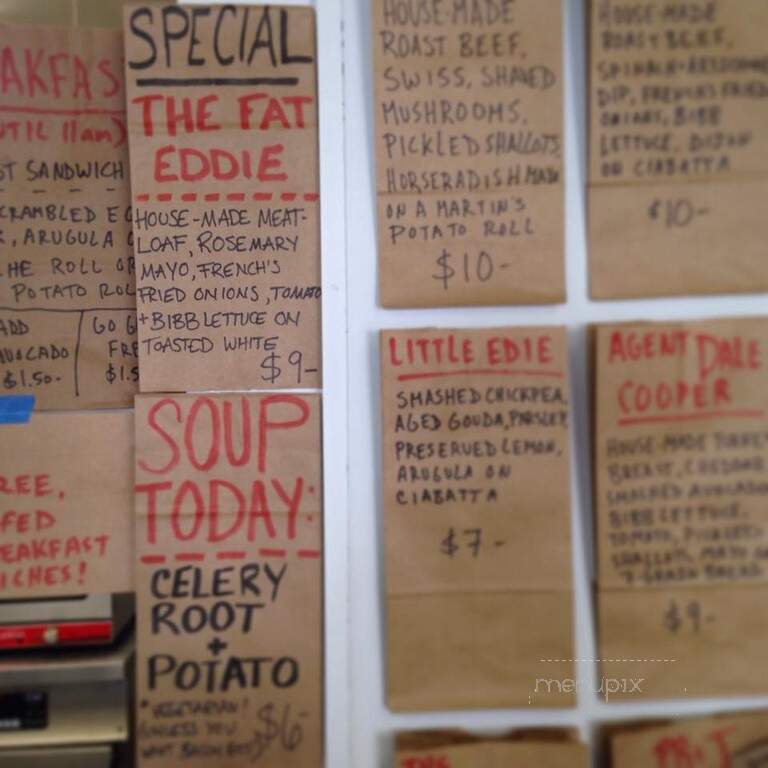 SPECIAL
THE FAT
EDDIE
HOUSE-MADE MEAT-
LOAF, ROSEMARY
MAYO, FRENCH'S
FRIED ONIONS, TOMATO
+ BIBB LETTUCE ON
TOASTED WHITE
$9-
SOUP
TODAY:
CELERY
ROOT
+
POTATO
*VEGETARIAN!
UNLESS YOU
WANT BACON BITS
$6-
AKFAS
UTIL 11am)
OT SANDWICH
CRAMBLED E
, ARUGULA
HE ROLL OR
POTATO ROL
ADD
AVOCADO
$1.50-
GO G
FRE
$1.5
REE,
FED
EAKFAST
ICHES!
HOUSE-MADE
ROAST BEEF,
SWISS, SHAVED
MUSHROOMS,
PICKLED SHALLOTS,
HORSERADISH MAYO
ON A MARTIN'S
POTATO ROLL
$10-
HOUSE-MADE
ROAST BEEF,
SPINACH-ARTICHOKE
DIP, FRENCH'S FRIED
ONIONS, BIBB
LETTUCE, DIJON
ON CIABATTA
$10-
LITTLE EDIE
SMASHED CHICKPEA,
AGED GOUDA, PARSLEY,
PRESERVED LEMON,
ARUGULA ON
CIABATTA
$7-
AGENT DALE
COOPER
HOUSE-MADE TURKEY
BREAST, CHEDDAR,
SMASHED AVOCADO
BIBB LETTUCE,
TOMATO, PICKLED
SHALLOTS, MAYO ON
7-GRAIN BREAD
$9-
THE
PB+J
menupix